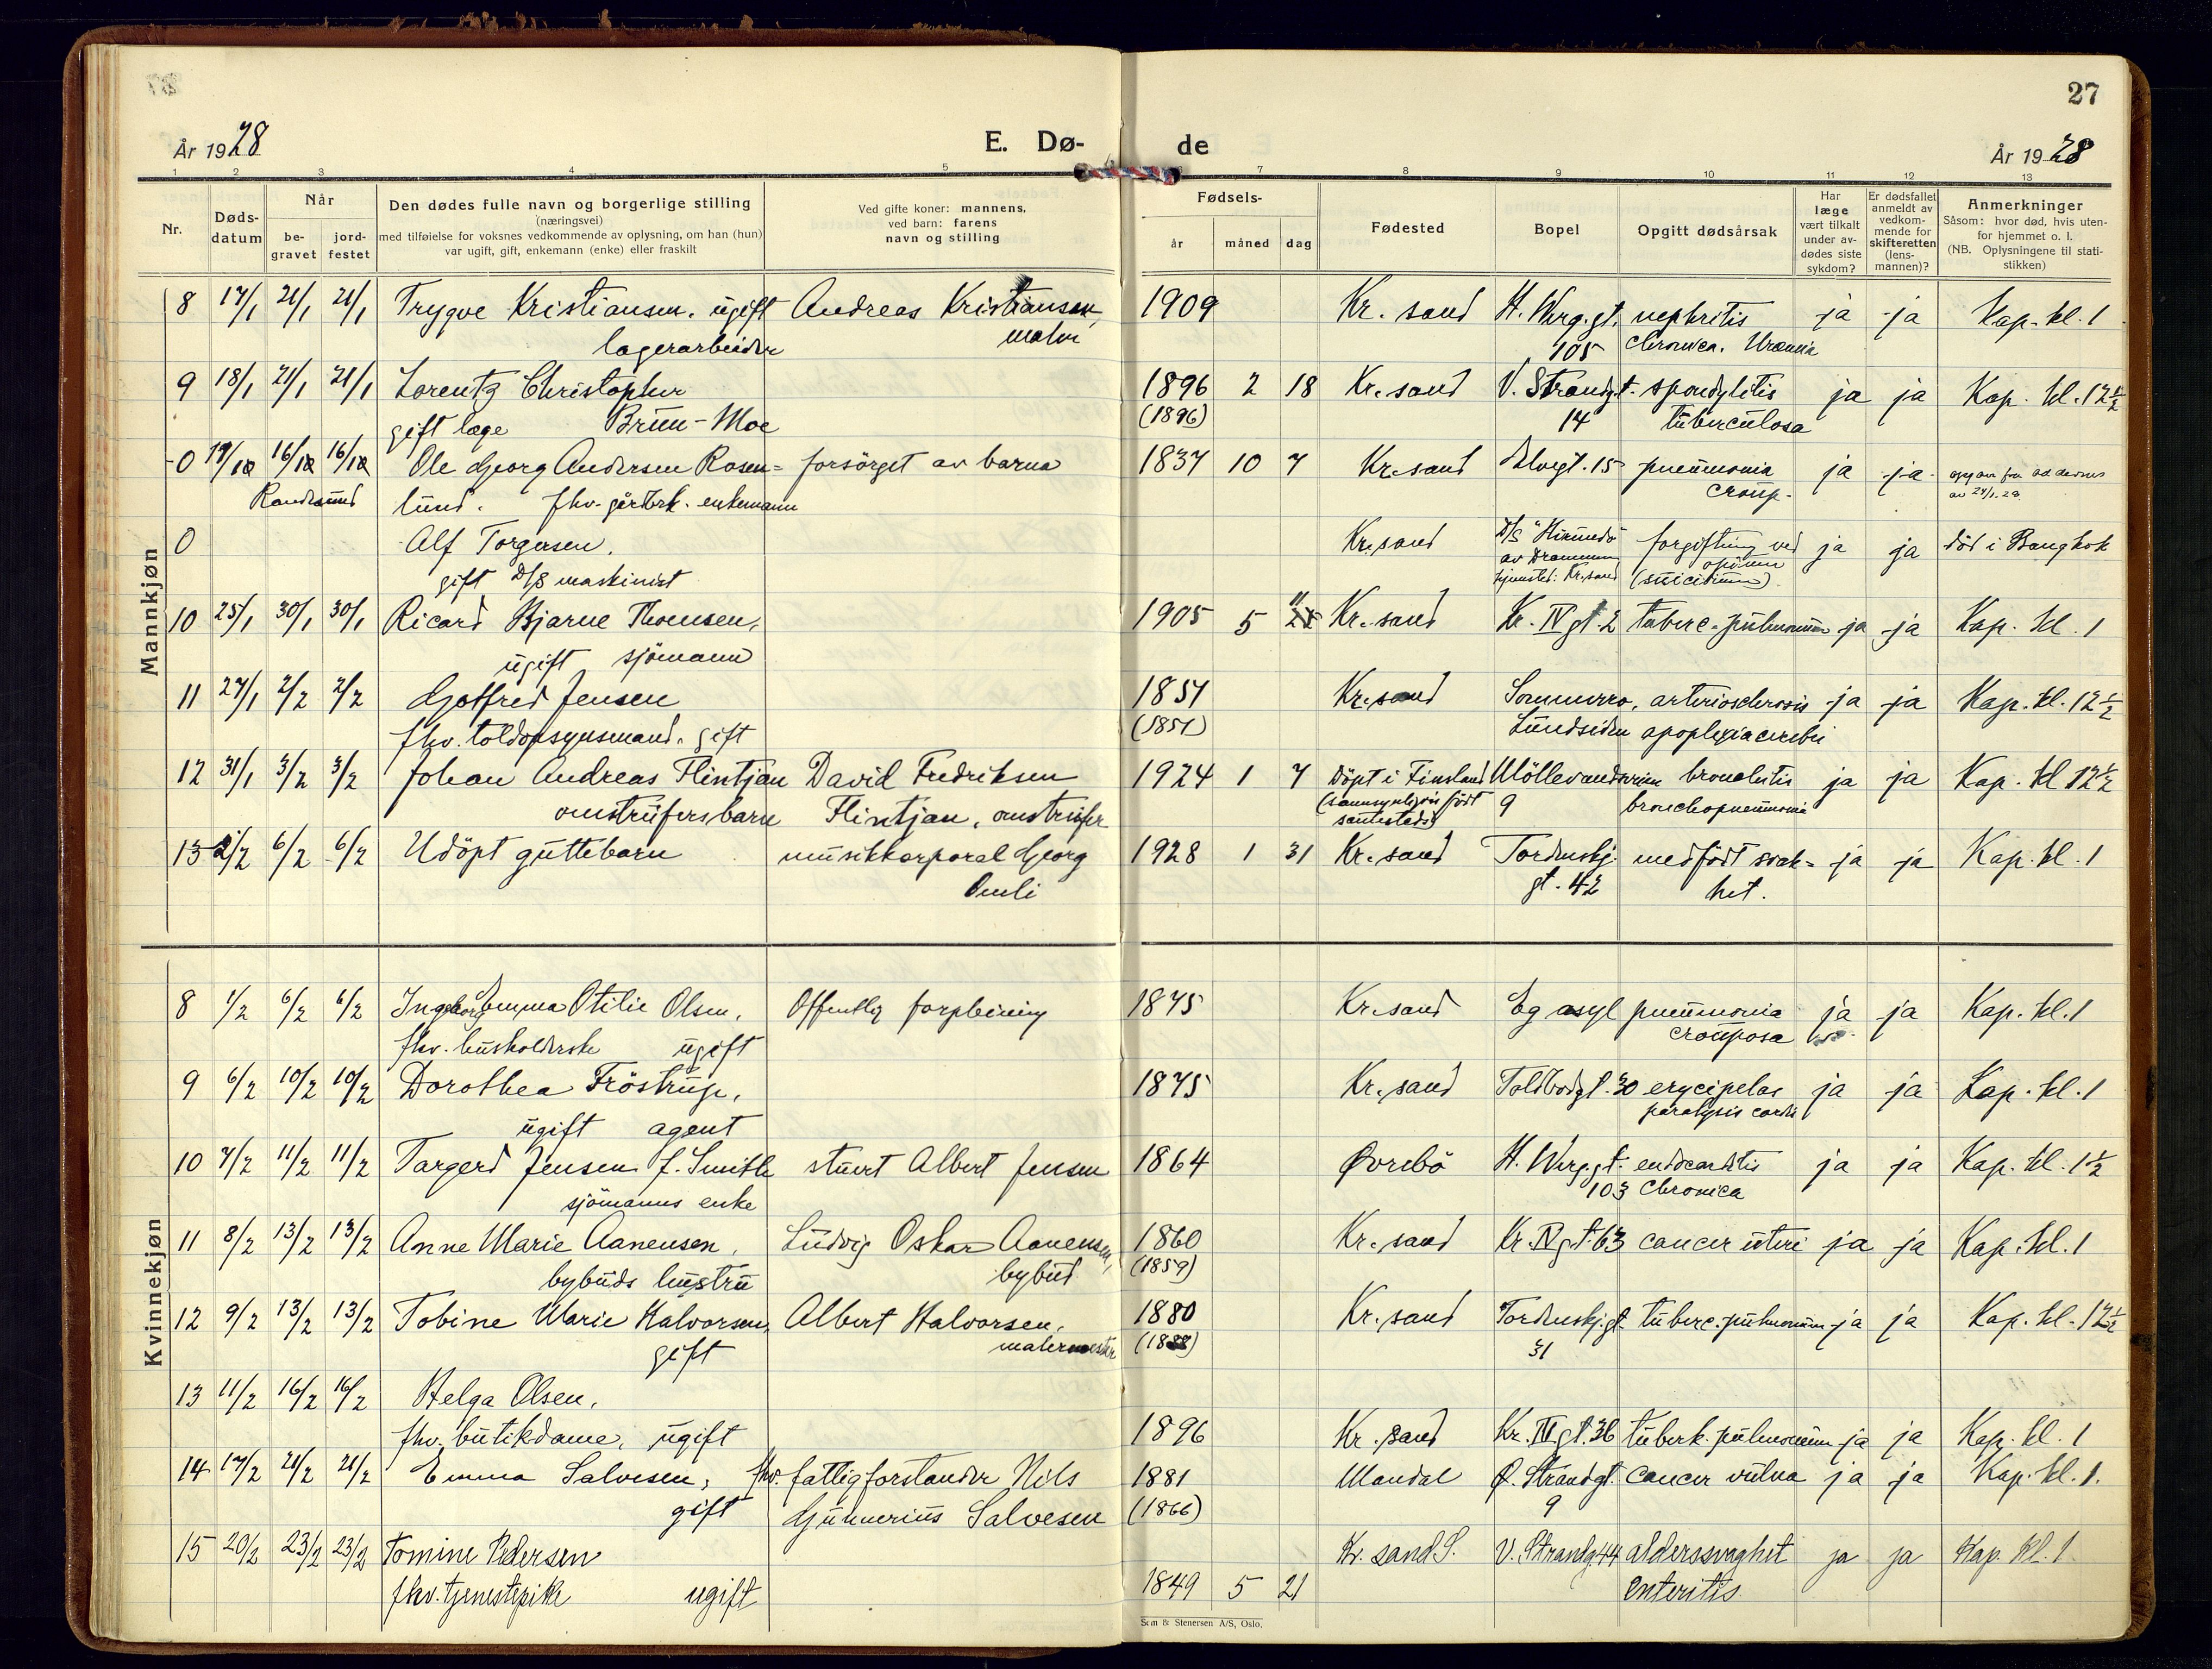 27
År 1928
E. Dø-
de
År 1928
1 2 3 4 5 6 7 8 9 10 11 12 13
Nr.
Døds-
datum
Når
be-
gravet
jord-
festet
Den dødes fulle navn og borgerlige stilling
(næringsvei)
med tilføielse for voksnes vedkommende av oplysning, om han (hun)
var ugift, gift, enkemann (enke) eller fraskilt
Ved gifte koner: mannens,
ved barn: farens
navn og stilling
Fødsels-
år
måned
dag
Fødested
Bopel
Opgitt dødsårsak
Har
læge
vært tilkalt
under av-
dødes siste
sykdom?
Er dødsfallet
anmeldt av
vedkom-
mende for
skifteretten
(lens-
mannen)?
Anmerkninger
Såsom: hvor død, hvis uten-
for hjemmet o. l.
(NB. Oplysningene til stati-
stikken)
Mannkjøn
8 17/1 21/1 21/1 Trygve Kristiansen. ugift Andreas Kristiansen, 1909 Kr.sand H. Werg.gt. nephritis ja ja Kap. kl. 1
lagerarbeider maler 105 chronica. Uræmia
9 18/1 21/1 21/1 Lorentz Christopher 1896 2 18 Kr.sand V. Strandgt. spondylitis ja ja Kap. kl. 12½
gift læge Brun-Moe (1896) 14 tuberculosa
0 16/12 16/12 Ole Georg Andersen Rosen= forsørget av barna 1837 10 7 Kr.sand Elvegt. 15 pneumonia ja ja
Randesund lund. fhv. gårdbrk. enkemann croup.
0 Alf Torgersen, Kr.sand D/S "Hirundo" forgiftning ved ja ja död i Bangkok
gift D/S maskinist av Drammen opium
hjemsted: Kr.sand (suicidium)
10 25/1 30/1 30/1 Ricard Bjarne Thomsen, 1905 5 11 Kr.sand Kr. IV gt. 2 tuberc. pulmonum ja ja Kap. kl. 1
ugift sjömann
11 27/1 2/2 2/2 Gotfred Jensen 1851 Kr.sand Sommerro, arteriosclerosis ja ja Kap. kl. 12½
fhv. toldopsynsmand. gift (1851) Lundsiden apoplexia cerebri
12 31/1 3/2 3/2 Johan Andreas Flintjan David Fredriksen 1924 1 7 Döpt i Finsland Möllevandsveien bronchitis ja ja Kap. kl 12½
omstreifersbarn Flintjan, omstreifer (sannsynligvis födt 9 bronchopneumonia
samesteds)
13 2/2 6/2 6/2 Udöpt guttebarn musikkorporal Georg 1928 1 31 Kr.sand Tordenskj. medfödt svak= ja ja Kap. kl. 1
Omli gt. 42 het.
Kvinnekjøn
8 1/2 6/2 6/2 Ingeborg Emma Otilie Olsen, Offentlig forpleining 1875 Kr.sand Eg asyl pneumonia ja ja Kap. kl. 1
fhv. husholderske ugift crouposa
9 6/2 10/2 10/2 Dorothea Fröstrup, 1875 Kr.sand Toldbodgt. 30 erycipelas ja ja Kap. kl. 1
ugift agent paralysis cordis
10 7/2 11/2 11/2 Targerd Jensen f. Smith stuert Albert Jensen 1864 Øvrebö H. Werg.gt. endocarditis ja ja Kap. kl. 1½
sjömanns enke 103 chronica
11 8/2 13/2 13/2 Anne Marie Aanensen, Ludvig Oskar Aanensen, 1860 Kr.sand Kr. IV gt 63 cancer uteri ja ja Kap. kl. 1
bybuds hustru bybud (1859)
12 9/2 13/2 13/2 Tobine Marie Halvorsen, Albert Halvorsen, 1880 Kr.sand Tordenskj.gt. tuberc. pulmonum ja ja Kap. kl. 12½
gift malermester 31
13 11/2 16/2 16/2 Helga Olsen,
fhv. butikdame, ugift 1896 Kr.sand Kr. IV gt. 36 tuberk. pulmonum ja ja Kap. kl. 1
14 17/2 21/2 21/2 Emma Salvesen, fhv. fattigforstander Nils 1881 Mandal Ø. Strandgt. cancer vulva ja ja Kap. kl. 1.
gift Gunnerius Salvesen (1866) 9
15 20/2 23/2 23/2 Tomine Pedersen Kr. sand S. V. Strandg 44 alderssvaghet ja ja Kap. kl. 1
fhv. tjenestepike ugift 1849 5 21 enteritis.
Sem & Stenersen A/S, Oslo.